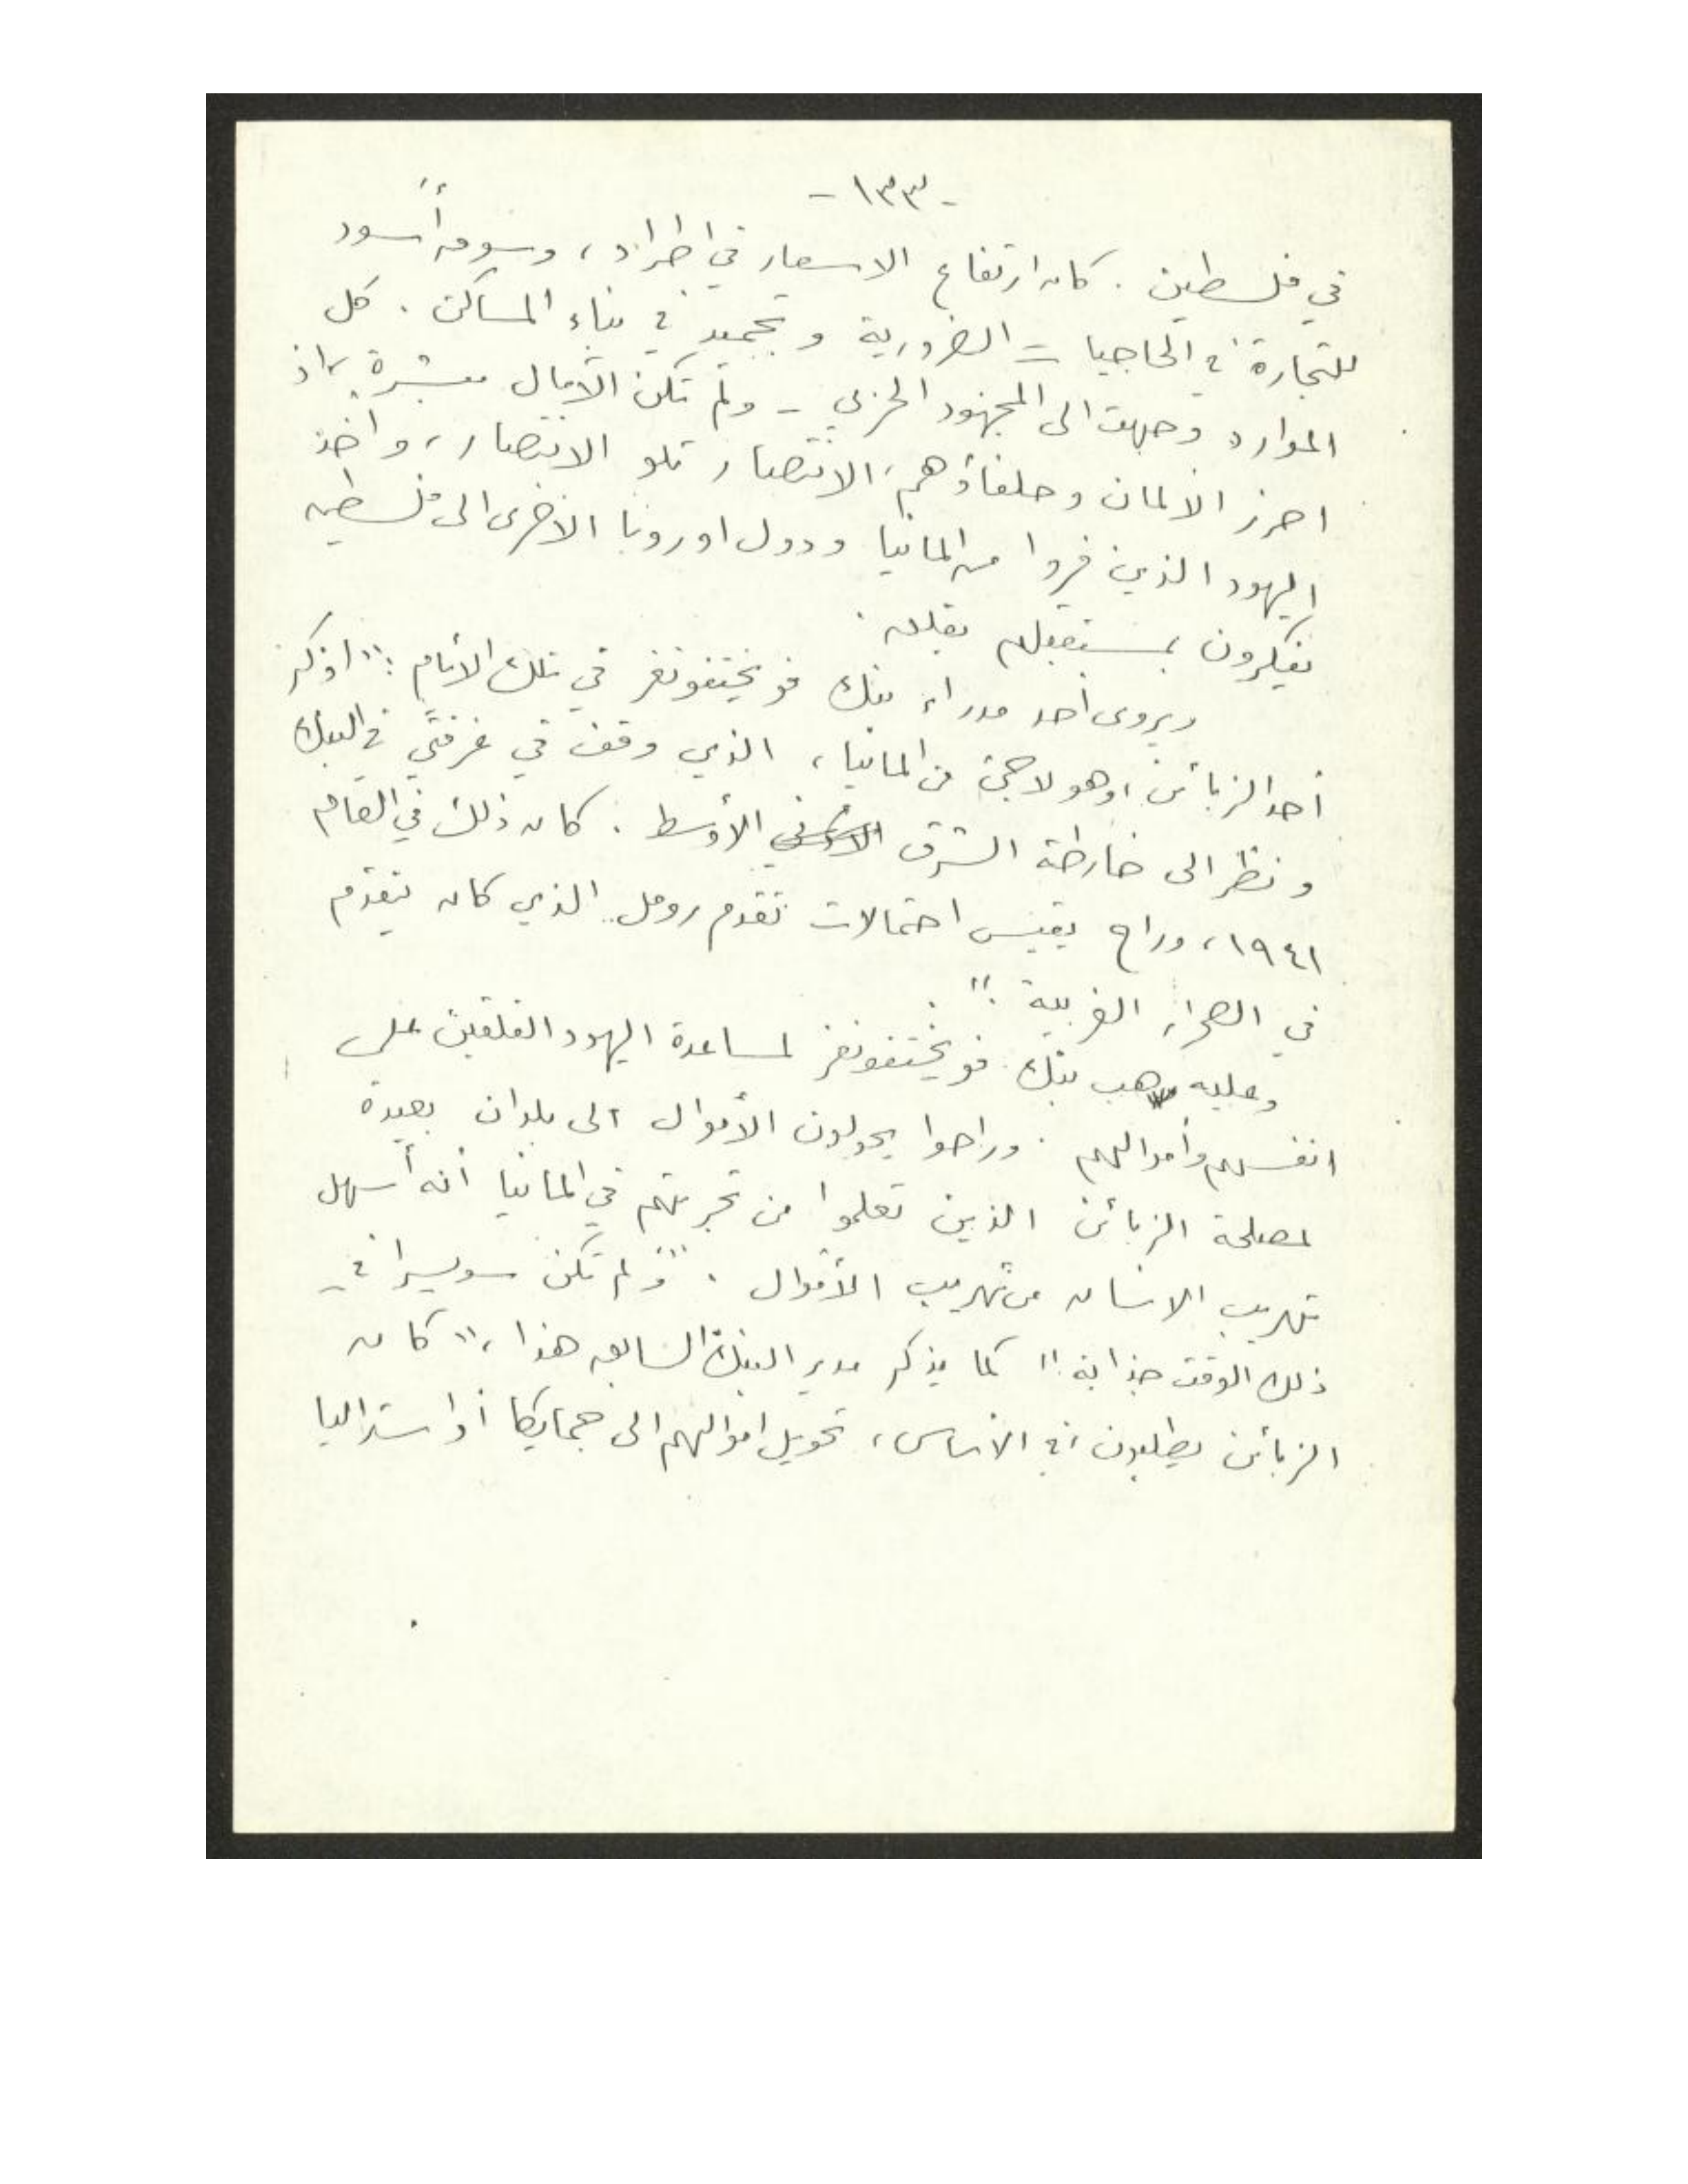 - ١٣٣ -
في فلسطين . كان ارتفاع الاسعار في اطراد ، وسوق أسود
للتجارة في الحاجيات الضرورية وتجميد في بناء المساكن . كل
الموارد وجهت الى المجهود الحربي - ولم تكن الآمال مبشرة ، اذ
احرز الالمان وحلفاؤهم ، الانتصار تلو الانتصار ، واخذ
اليهود الذين فروا من المانيا ودول اوروبا الاخرى الى فلسطين
يفكرون بمستقبلهم بقلق .
ويروى أحد مدراء بنك فويختفونغر في تلك الأيام : " اذكر
أحد الزبائن ، وهو لاجئ من المانيا ، الذي وقف في غرفتي في البنك
ونظر الى خارطة الشرق الأوسط . كان ذلك في العام
١٩٤١ ، وراح يقيس احتمالات تقدم رومل الذي كان يتقدم
في الصحراء الغربية " .
وعليه هب بنك فويختفونغر لمساعدة اليهود القلقين على
انفسهم وأموالهم . وراحوا يحولون الأموال الى بلدان بعيدة
لمصلحة الزبائن الذين تعلموا من تجربتهم في المانيا أنه أسهل
تهريب الانسان من تهريب الأموال . " ولم تكن سويسرا في
ذلك الوقت جذابة " كما يذكر مدير البنك السابق هذا ، " كان
الزبائن يطلبون ، في الأساس ، تحويل اموالهم الى جمايكا أو استراليا